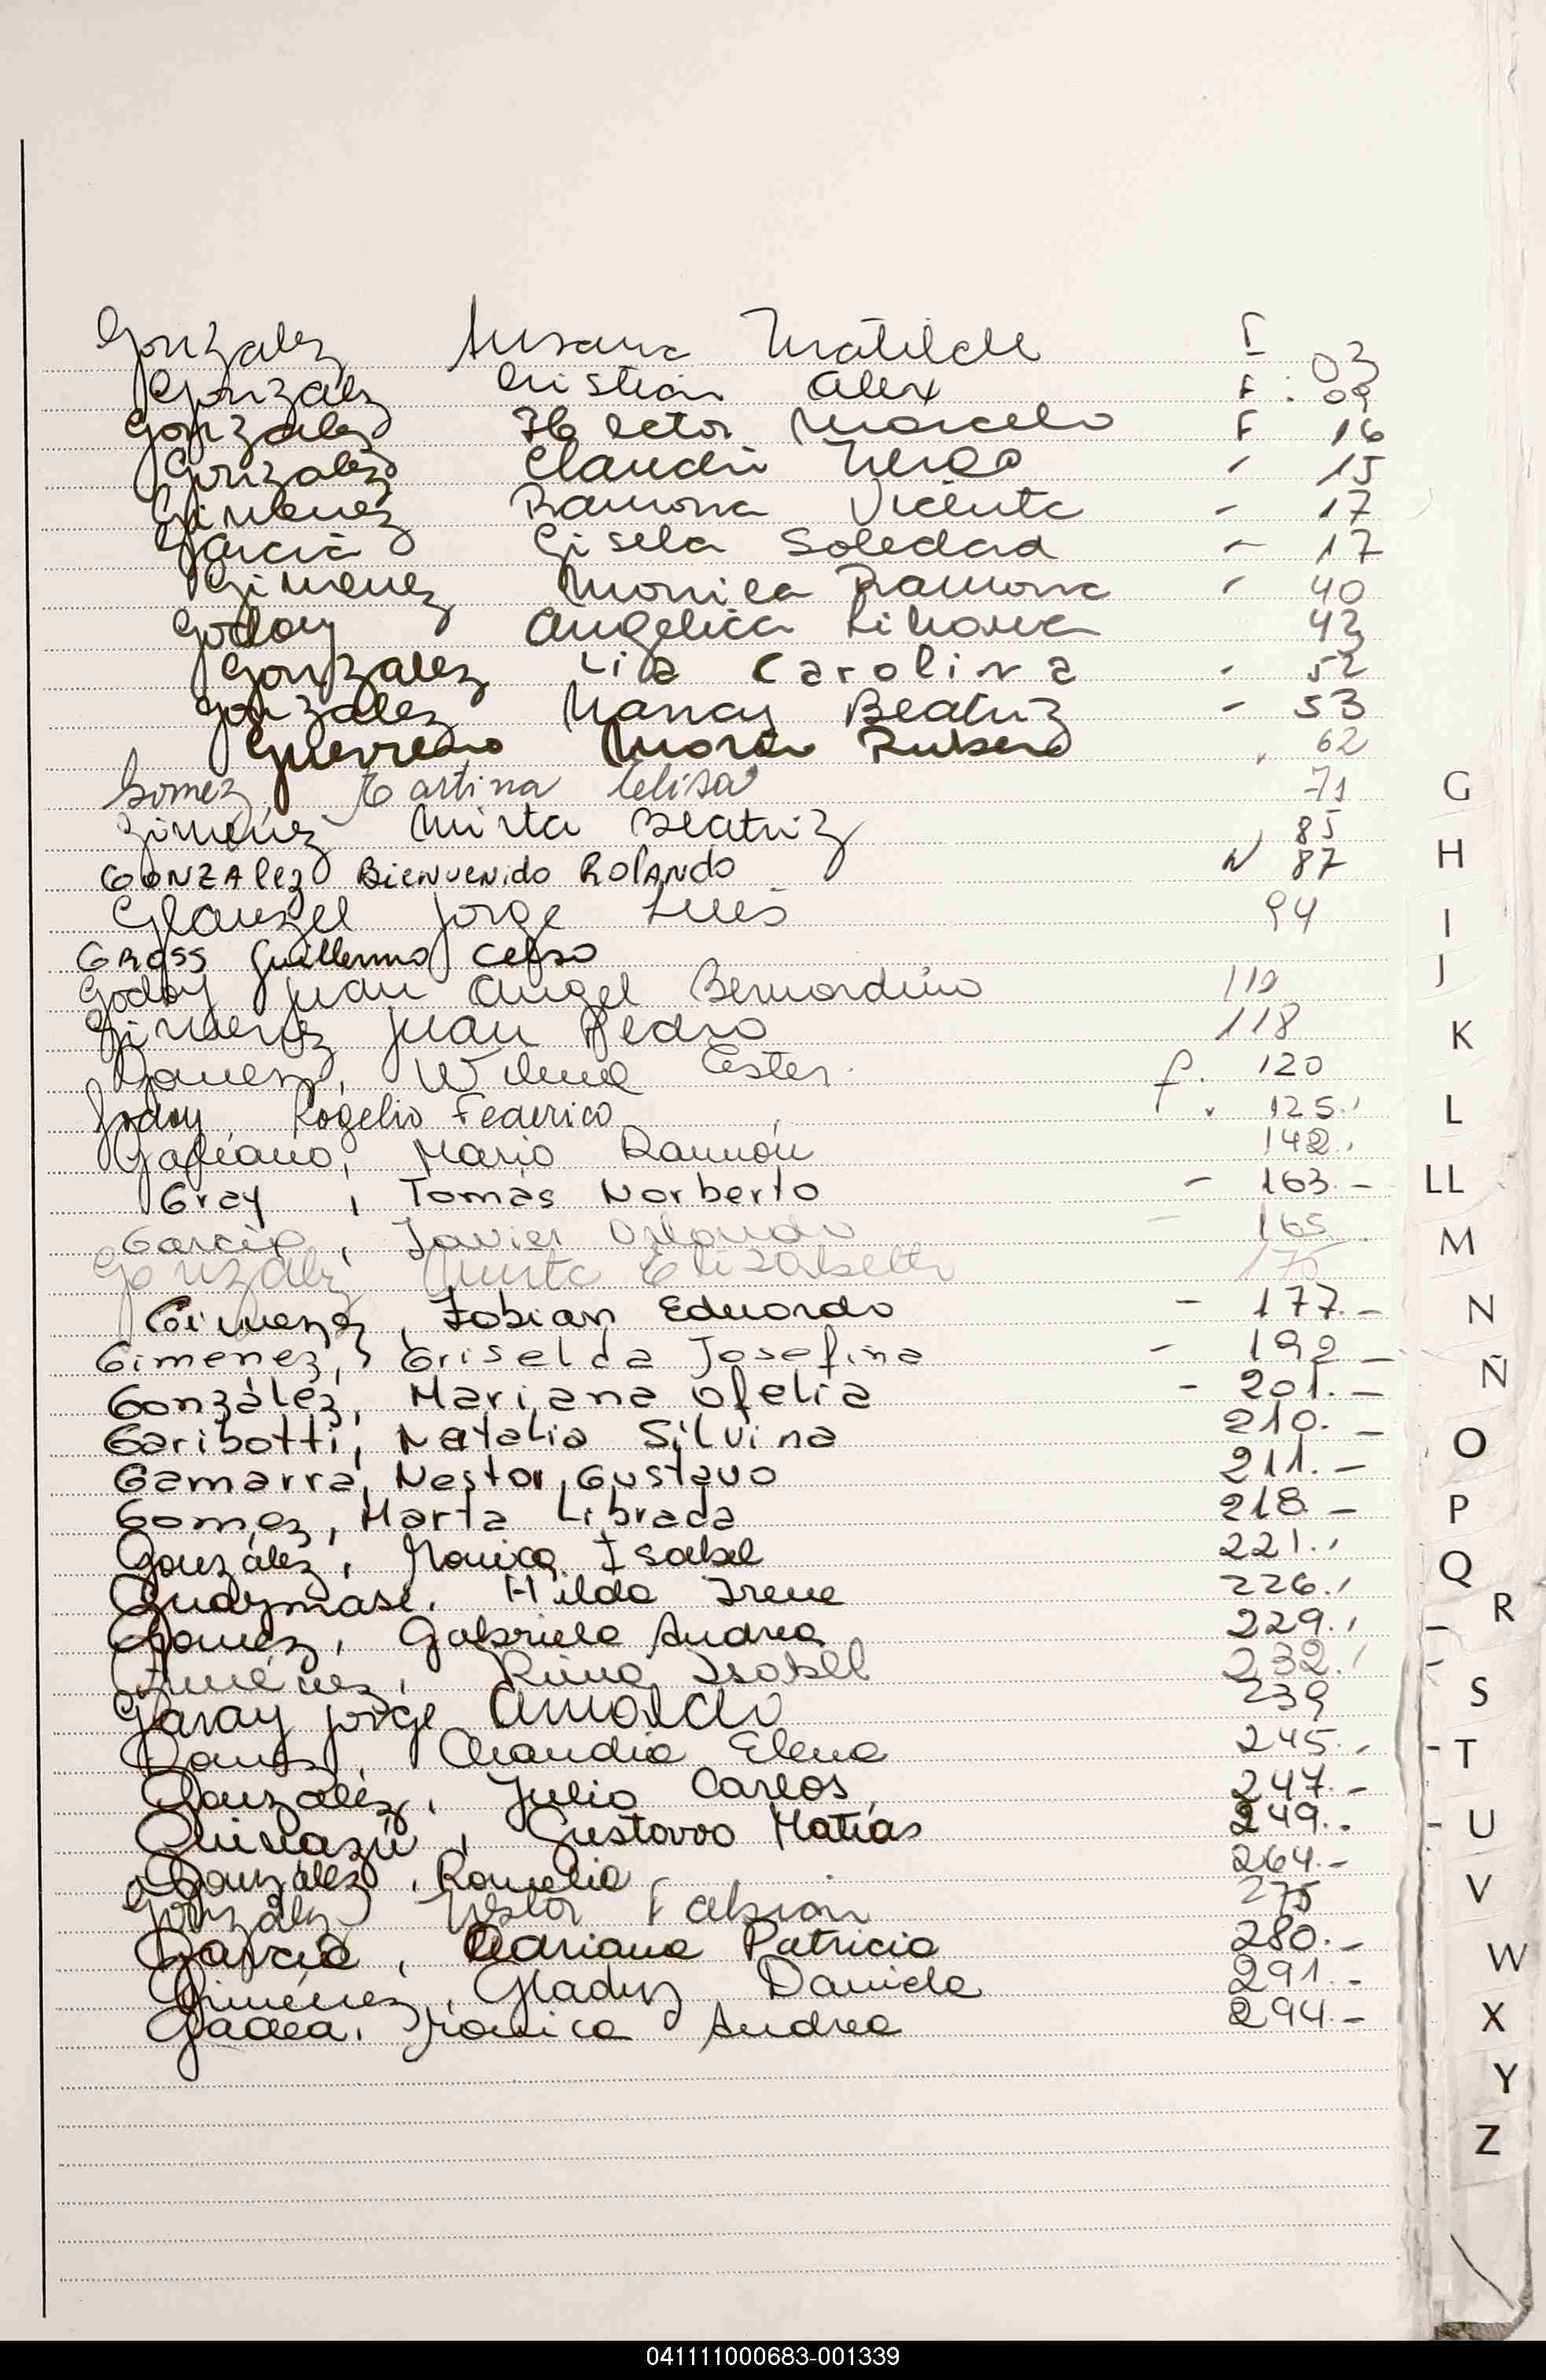 Gonzalez Susana Matilde F 03
Gonzalez Cristian Alex F : 09
Gonzalez Hector Marcelo F 16
Gonzalez Claudio 15
Gimenez Ramona Vicenta - 17
Garcia Gisela Soledad - 17
Gimenez Monica Ramona 40
Godoy Angelica 42
Gonzalez Lia Carolina - 52
Gonzalez Nancy Beatriz - 53
Guerrero Mario Ruben 62
Gomez, Martina Celisa 71
Gimenez Mirta Beatriz 85
GONZALEZ BIENVENIDO ROLANDO N 87
Glanzel Jorge Luis 94
GROSS Guillermo Celso
Godoy Juan Angel Bernardino 110
Gimenez Juan Pedro 118
Gomez, Wilma Ester. f. 120
Godoy, Rogelio Federico 125.
Gafeano, Mario Ramón 142.
Gray, Tomás Norberto - 163.-
García, Javier Orlando - 165
Gonzalez Mirta Elizabeth 175
Gimenez, Fabian Eduardo - 177.-
Gimenez, Griselda Josefina - 192 -
González, Mariana Ofelia - 201.-
Garibotti, Natalia Silvina 210.-
Gamarra, Nestor Gustavo 211.-
Gomez, Marta Librada 218 -
González, Monica Isabel 221.
Guaymase. Hilda Irene 226.
Gomez, Gabriela Andrea 229.
Giménez, Rina Isabel 232.
Garay Jorge Arnoldo 239
Claudia Elena 245.
González, Julio Carlos 247.-
Guinazú, Gustavo Matías 249.
González, Romelia 264.-
Gonzalez Nestor Fabian 275
García, Adriana Patricia 280.-
Giménez, Gladys Daniela 291.-
Gadea, Monica Andrea 294.-
G
H
I
J
K
L
LL
M
N
Ñ
O
P
Q
R
S
T
U
V
W
X
Y
Z
041111000683-001339